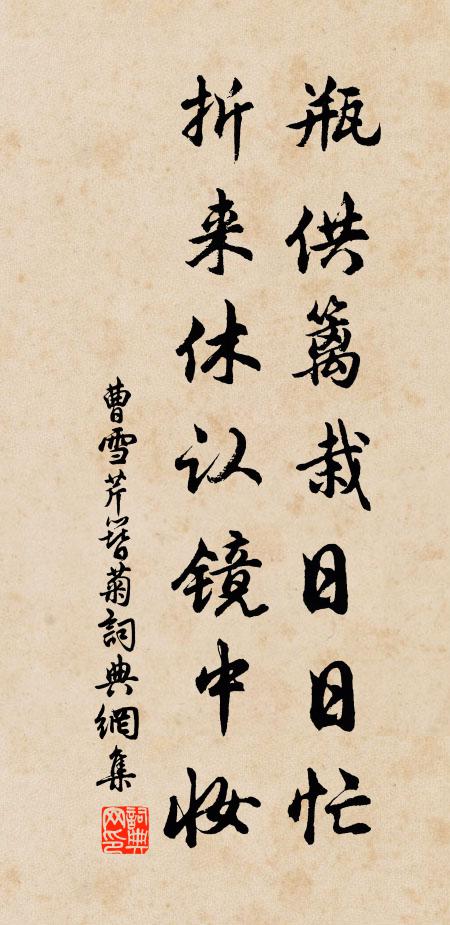 瓶供篱栽日日忙
折来休认镜中妆
曹雪芹簪菊詞典網集
詞典网印